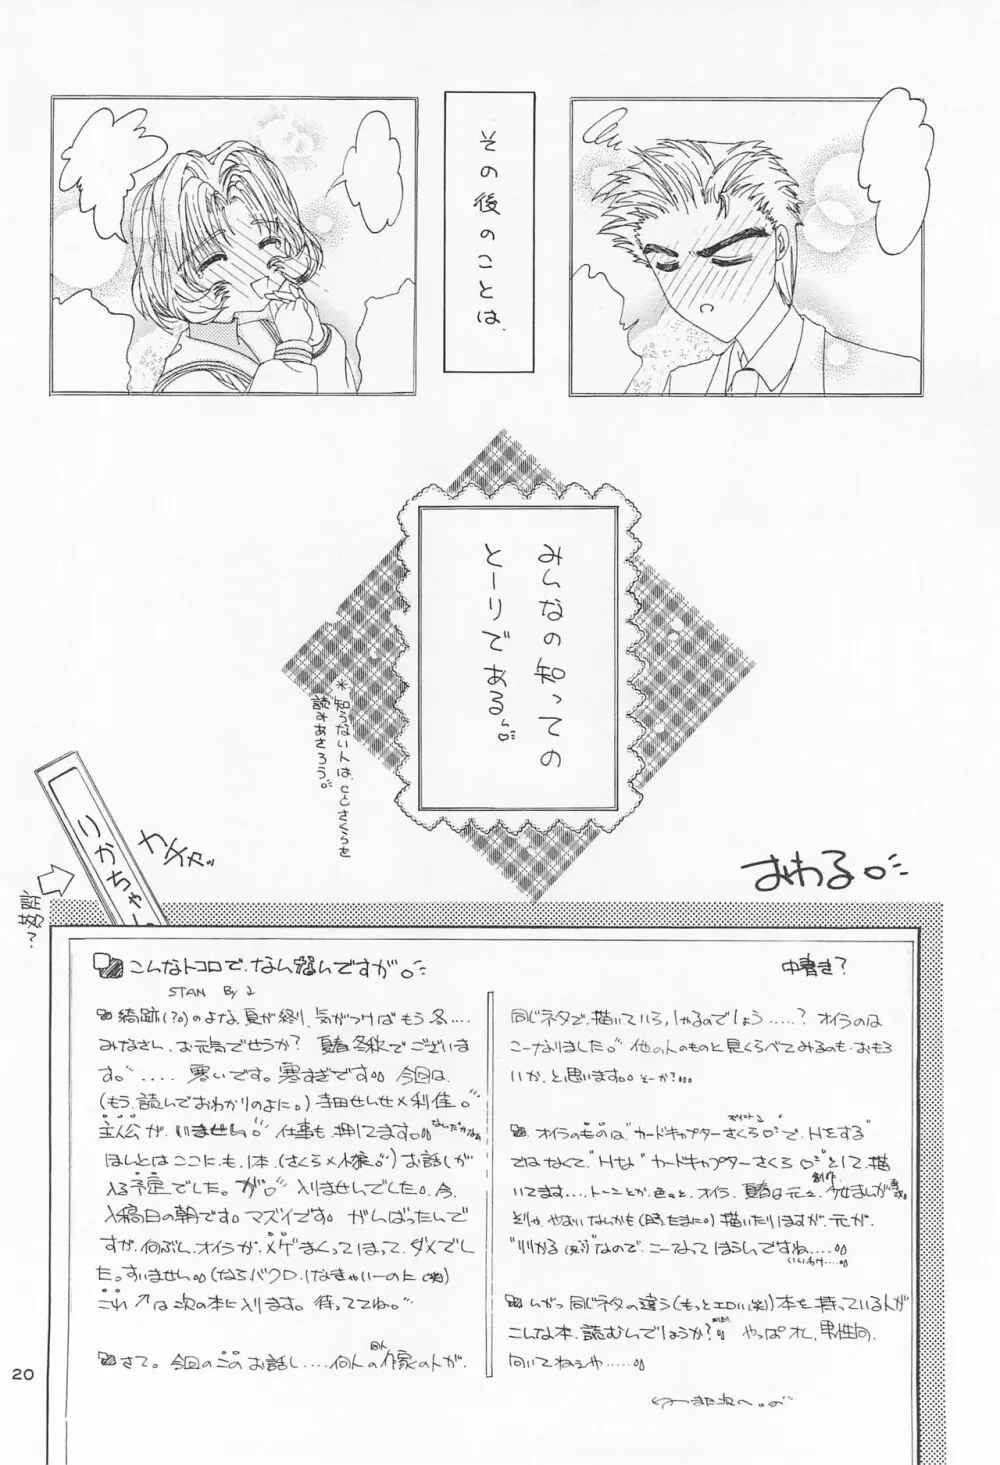 その後のことは、
みんなの知っての
とーりである。
*知らない人は、CCさくらを
読みあさろう。
りかちゃん
カチャッ
おわる。
こんなトコロで、なんなんですが。
STAN By 2
中書き?
みなさん、お元気でせうか? 夏春冬秋でございま
す。……寒いです。寒すぎです。今回は、
(もう、読んでおわかりのよに。)寺田せんせ×利佳。
主人公が、いません。仕事も、押してます。
ほんとはここに、も、1本、(さくら×小狼。)お話しが
入る予定でした。が。入りませんでした。今、
入稿日の朝です。マズイです。がんばったんで
すが、何ぶん、オイラが、メゲまくってほって、ダメでし
た。すいません。
これ↗は次の本に入ります。待っててね。
さて。今回のこのお話し……何人の作家の人が、
同じネタで、描いていらっしゃるのでしょう……? オイラのは
こーなりました。他の人のものと見くらべてみるのも、おもろ
いか、と思います。とーか?
オイラのものは"カードキャプターさくら"で、Hをする"
ではなくて"Hな"カードキャプターさくら"として、描
いてます……トーンとか、
描いたりしますが、元が、
なので、こーなってほうんですね……
いいわけ……
同じネタの違う(もっとエロい(笑))本を持っている人が
こんな本、読むんでしょうか? やっぱオレ、男性向、
向いてねぇや……
20